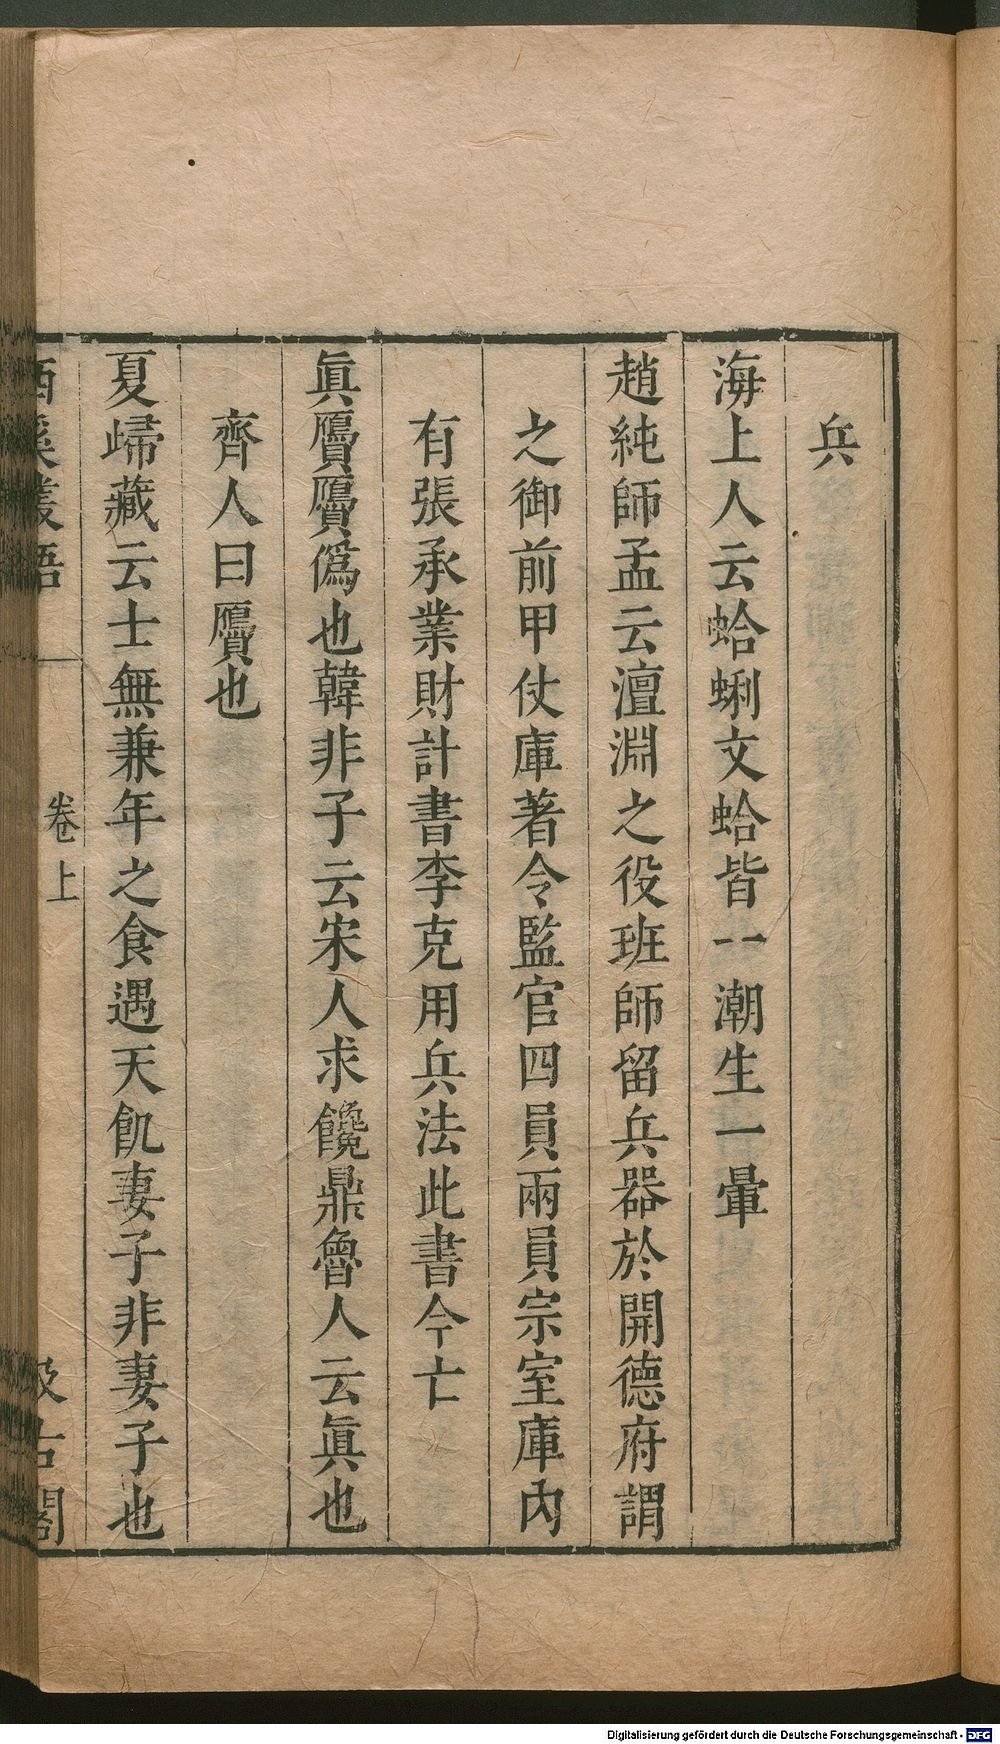 兵
海上人云蛤蜊文蛤皆一潮生一暈
趙純師孟云澶淵之役班師留兵器於開德府謂
之御前甲仗庫著令監官四員兩員宗室庫內
有張承業財計書李克用兵法此書今亡
眞贗贗僞也韓非子云宋人求饞鼎魯人云眞也
齊人曰贗也
夏歸藏云士無兼年之食遇天飢妻子非妻子也
西溪叢語
卷上
汲古閣
Digitalisierung gefördert durch die Deutsche Forschungsgemeinschaft - DFG